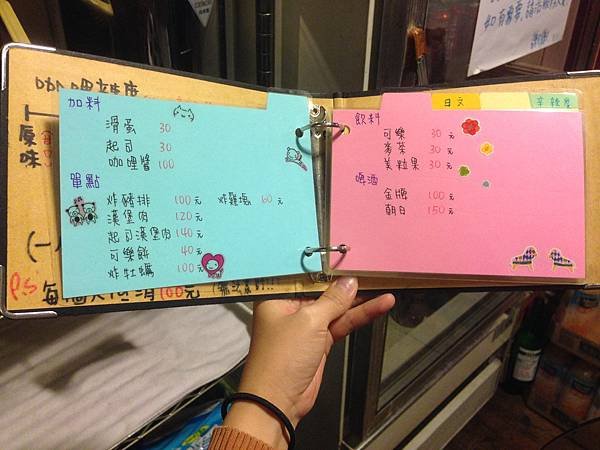 咖哩辣度
原味
加料
滑蛋 30
起司 30
咖哩醬 100
單點
炸豬排 100元 炸雞塊 60元
漢堡肉 120元
起司漢堡肉 140元
可樂餅 40元
炸牡蠣 100元
P.S 每個人低消100元
日文
辛辣度
飲料
可樂 30元
麥茶 30元
美粒果 30元
啤酒
金牌 100元
朝日 150元
如有需要,請
謝謝